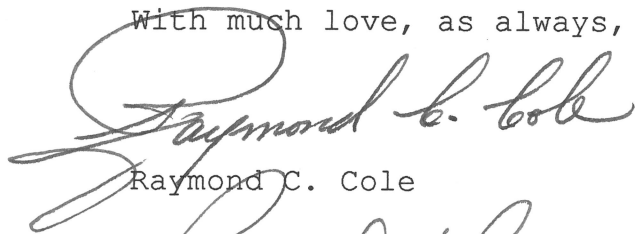 With much love, as always,
Raymond C. Cole
Raymond C. Cole